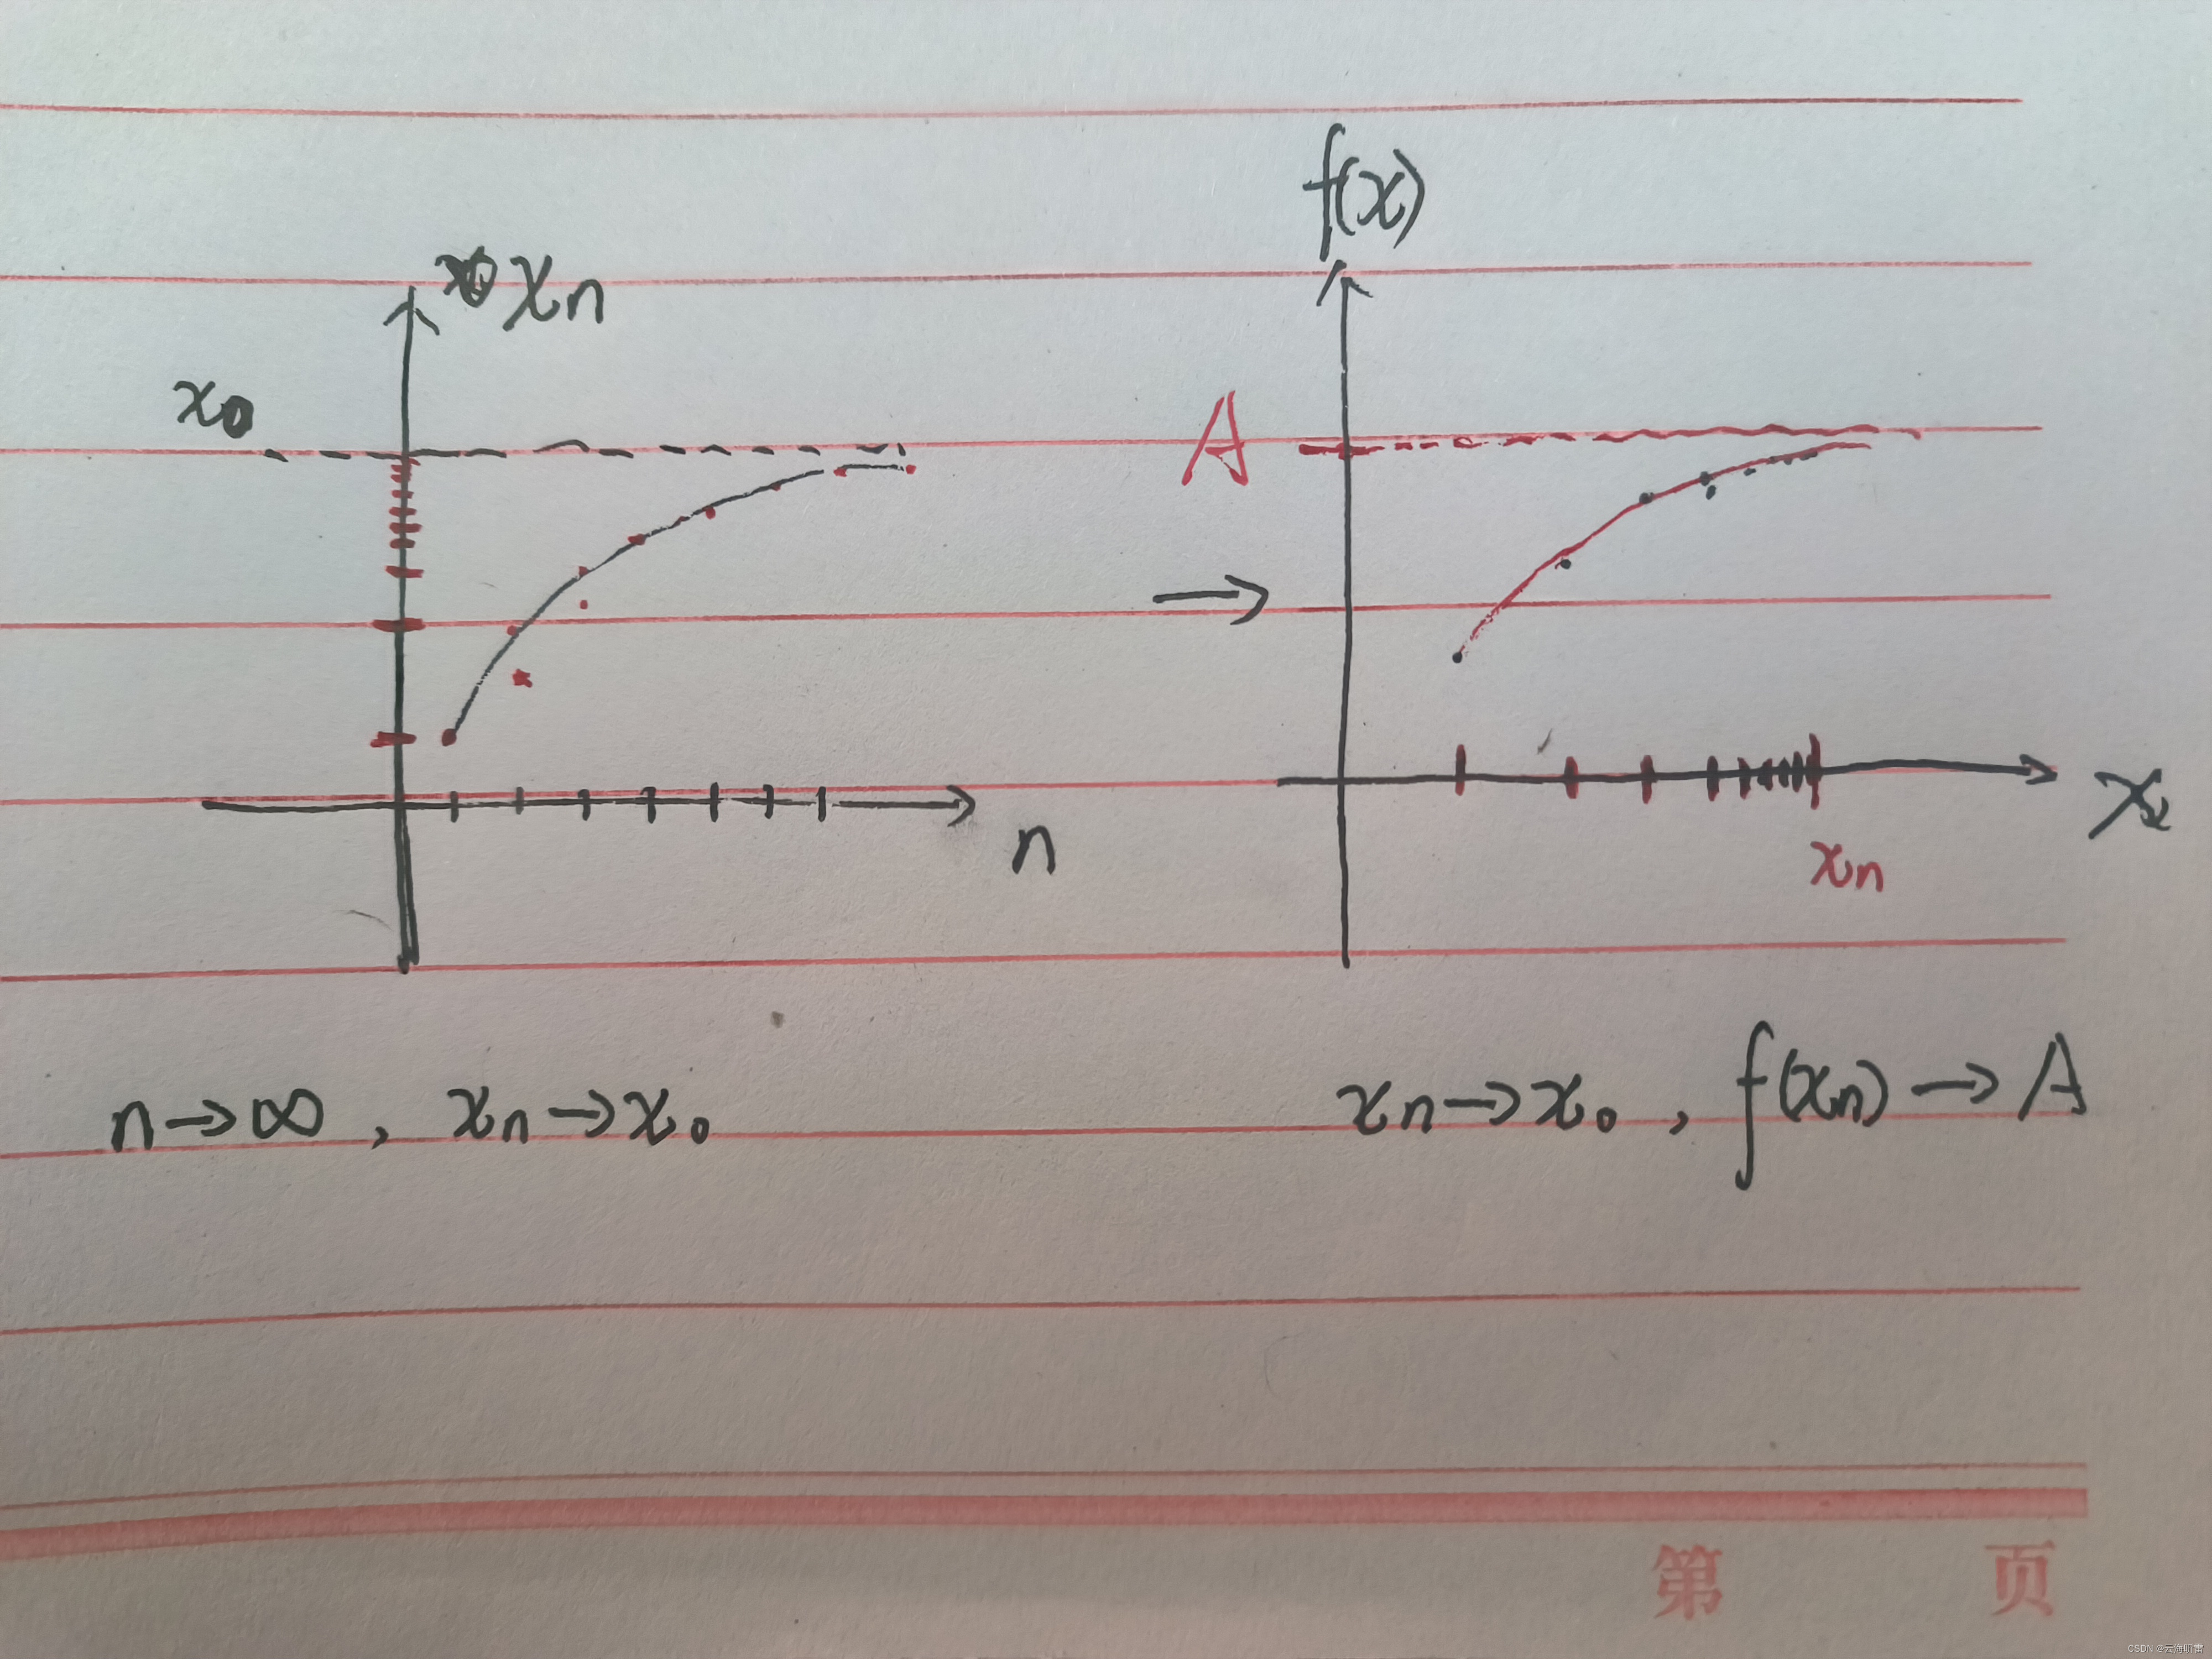 f(x)
xₙ
x₀
A
n
x
xₙ
n→∞, xₙ→x₀
xₙ→x₀, f(xₙ)→A
第 页
CSDN @云海听雷